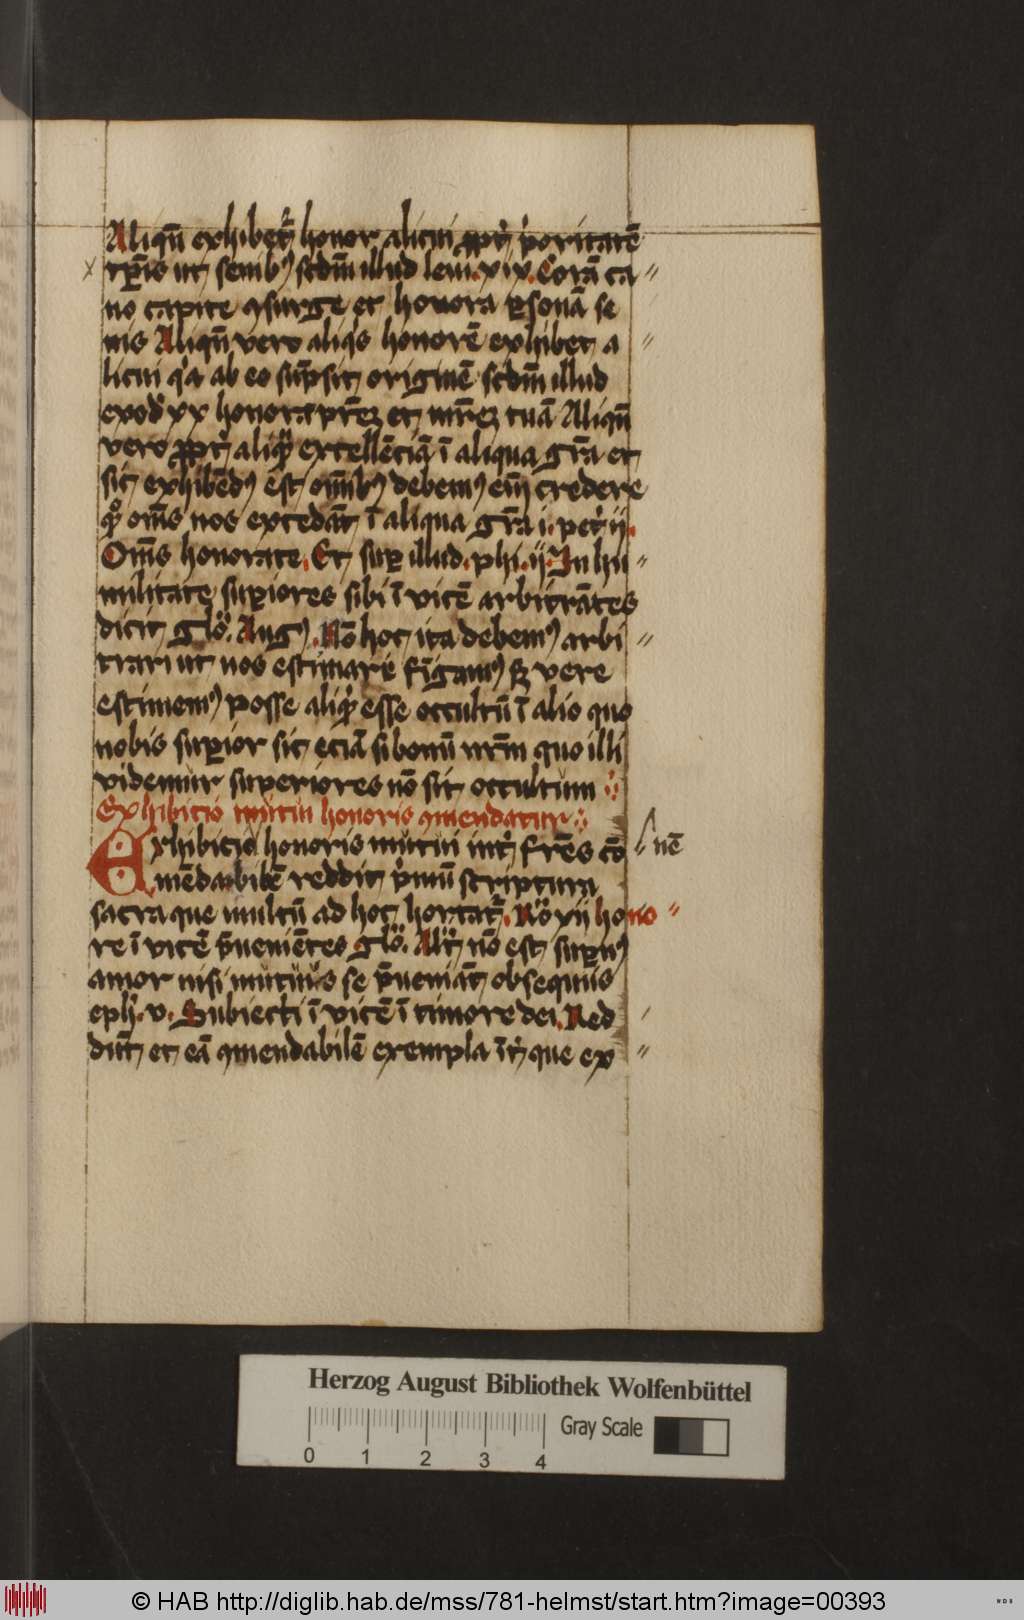 Aliqn̄ exhibet᷑ honor alicui ꝓpt᷑ p̓oritatē
tꝑis ut senibꝰ scdm̄ illud leui. xix. Corā ca〃
no capite ꝯsurge et honora ꝑsonā se
nis Aliqn̄ vero aliqͥs honorē exhibet a〃
licui qͥa ab eo sūpsit originē scdm̄ illud
exodͥ xx honora pr̄eꝫ et mr̄eꝫ tuā Aliqn̄
vero ꝓpt᷑ aliqͣ excellēciā ī aliqua gr̄a et
sic exhibēdꝰ est om̄ibꝰ debemꝰ em̄ credere
qͦ om̄s nos excedāt ī aliqua gr̄a i. pet᷑ ij.
Om̄s honorate. Et suꝑ illud. phi. ij. In hu〃
militate suꝑiores sibi ī vicē arbitrātes
dicit glo᷑. Augꝰ. Nō hoc ita debemꝰ arbi〃
trari ut nos estimare fīgamꝰ sꝫ vere
estimemꝰ posse aliqͥd esse occultū ī alio quo
nobis suꝑior sit eciā si bonū nr̄m quo illi
videmur superiores nō sit occultum
Exhibicio mutui honoris ꝯmendatur
Exhibicio honoris mutui int᷑ fr̄es cō nē
mēdabilē reddit p̓mū scriptura
sacra que multū ad hoc hortat᷑. Ro᷑ xij hono〃
re ī vicē p̄ueniētes glo᷑. Alt᷑ nō est suꝑnꝰ
amor nisi mutuis se p̄ueniāt obsequiis
eph̓. v. Subiecti ī vicē ī timore dei. Red
dūt et eā ꝯmendabilē exempla īt᷑ que ex〃
Herzog August Bibliothek Wolfenbüttel
Gray Scale
0 1 2 3 4
© HAB http://diglib.hab.de/mss/781-helmst/start.htm?image=00393